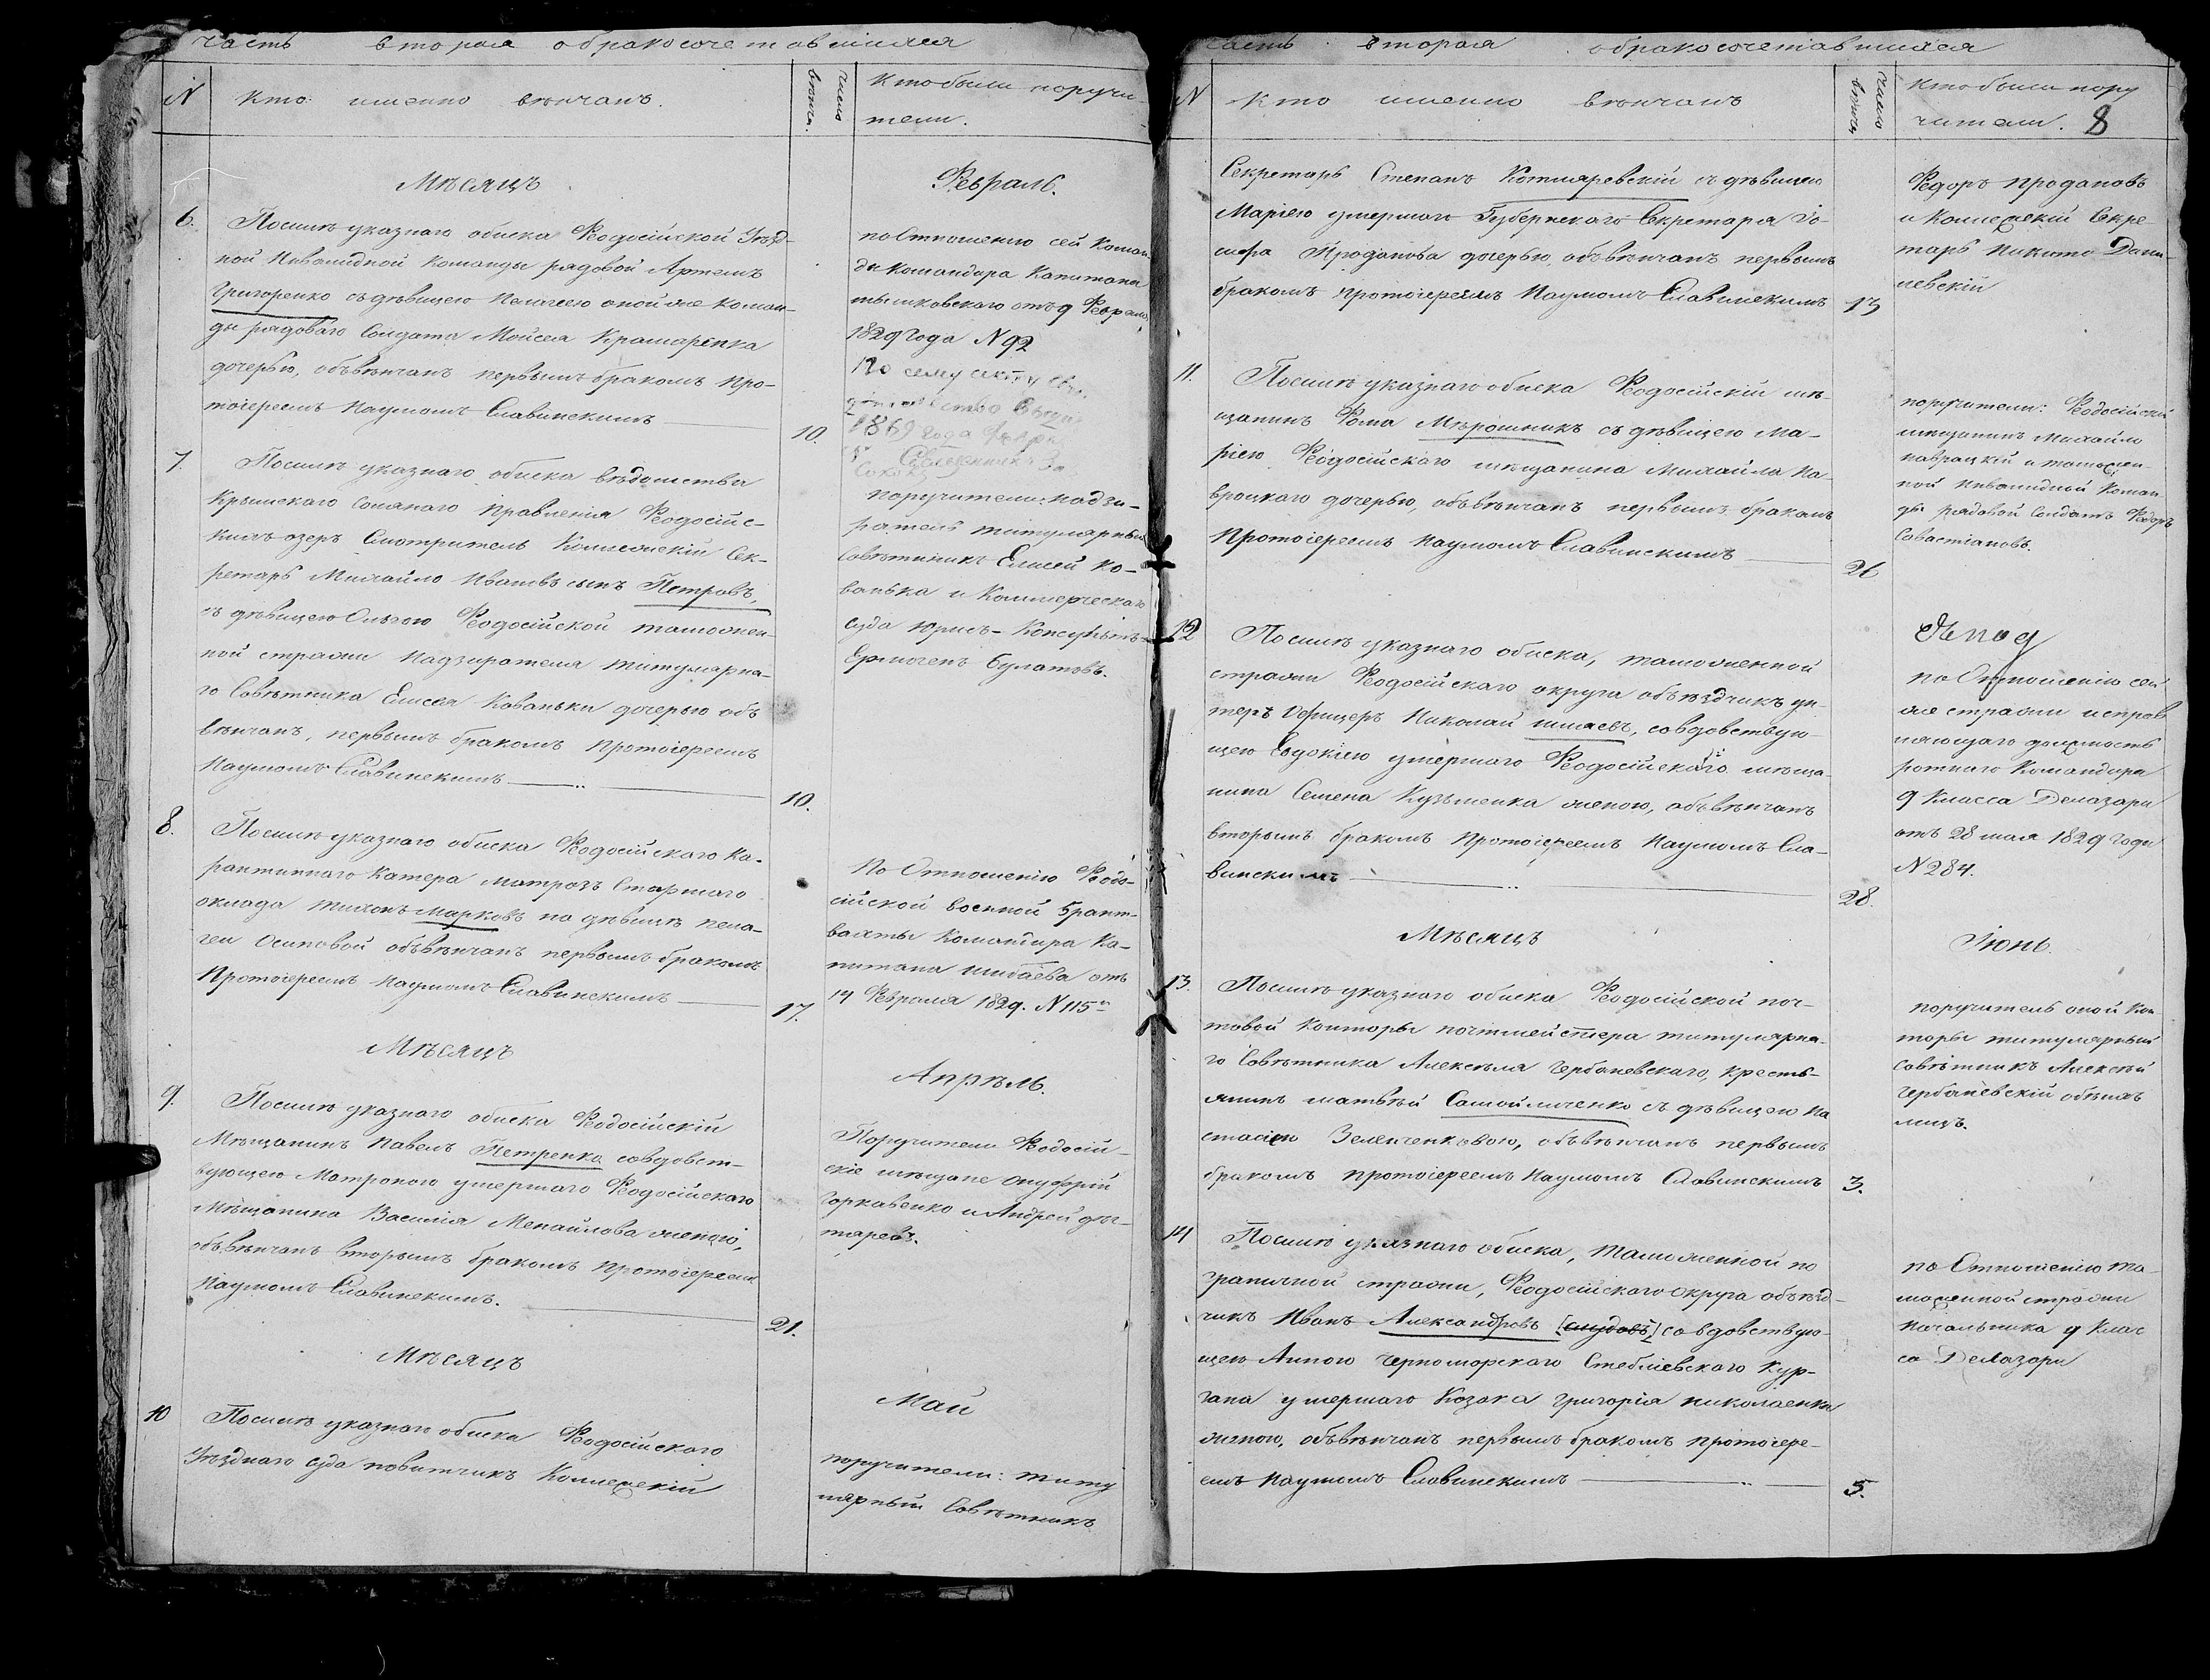 часть вторая обракосочетавшихся
N
Кто именно вѣнчанъ.
число вѣнча.
Кто были поручи-
тели.
Мѣсяцъ
Февраль.
6.
Послѣ указнаго обыска Ѳеодосійской Уѣзд-
ной Инвалидной Команды рядовой Артемъ
Григоренко съ дѣвицею Пелагеею оной же коман-
ды рядоваго Солдата Мойсея Крамаренка
дочерью, обвѣнчанъ первымъ бракомъ про-
тоіереемъ Наумомъ Славинскимъ
10.
по Отношенію сей Коман
ды Командира Капитана
отъ 9 Февраля
1829 года N 92
По сему
1869 года
7.
Послѣ указнаго обыска вѣдомства
Крымскаго Солянаго Правленія Ѳеодосійс-
кихъ озеръ Смотритель Коллежскій Сек-
ретарь Михайло Ивановъ сынъ Петровъ,
съ дѣвицею Ольгою Ѳеодосійской таможен-
ной стражи Надзирателя титулярна-
го Совѣтника Елисея Кованьки дочерью объ
вѣнчанъ, первымъ бракомъ Протоіереемъ
Наумомъ Славинскимъ
10.
поручители: надзи-
ратель титулярный
Совѣтникъ Елисей Ко-
ванька и Коммерческаго
суда Юрисъ-Консультъ
Ермогенъ Булатовъ.
8.
Послѣ указнаго обыска Ѳеодосійскаго Ка-
рантиннаго Катера матрозъ Старшаго
оклада Тихонъ Марковъ на дѣвицѣ Пела-
геи Осиповой обвѣнчанъ первымъ бракомъ
Протоіереемъ Наумомъ Славинскимъ
17.
По Отношенію Ѳеодо-
сійской военной Брант-
вахты Командира Ка-
питана Шибаева отъ
14 Февраля 1829. N 115
Мѣсяцъ
Апрѣль.
9.
Послѣ указнаго обыска Ѳеодосійскій
Мѣщанинъ Павелъ Петренко совдовст-
вующею Матроною умершаго Ѳеодосійскаго
Мѣщанина Василія Менайлова женою,
обвѣнчанъ вторымъ бракомъ Протоіереемъ
Наумомъ Славинскимъ.
21.
Поручители Ѳеодосій-
скіе мѣщане Онуфрій
Горкавенко и Андрей Дег-
таревъ.
Мѣсяцъ
Май
10
Послѣ указнаго обыска Ѳеодосійскаго
Уѣзднаго суда повытчикъ Коллежскій
поручители: титу
лярный Совѣтникъ
часть вторая обракосочетавшихся
N
Кто именно вѣнчанъ
число вѣнча
Кто были пору
чители. 8
Секретарь Степанъ Котляревскій съ дѣвицею
Маріею умершаго Губернскаго Секретаря Іо-
сифа Проданова дочерью, обвѣнчанъ первымъ
бракомъ протоіереемъ Наумомъ Славинскимъ
13
Федоръ Продановъ
и Коллежскій Секре
тарь Никита Дани-
левскій
11.
Послѣ указнаго обыска Ѳеодосійскій мѣ-
щанинъ Фома Мѣрошникъ съ дѣвицею Ма-
ріею Ѳеодосійскаго мѣщанина Михайла На-
вроцкаго дочерью, обвѣнчанъ первымъ бракомъ
Протоіереемъ Наумомъ Славинскимъ
26
поручители: Ѳеодосійскій
мѣщанинъ Михайло
Навроцкій и таможен-
ной Инвалидной Коман-
ды рядовой Солдатъ Федоръ
Савастіановъ.
12
Послѣ указнаго обыска, таможенной
стражи Ѳеодосійскаго округа объѣздчикъ ун-
теръ Офицеръ Николай Шилаевъ, совдовствую-
щею Евдокіею умершаго Ѳеодосійскаго мѣща-
нина Семена Кузьменка женою, обвѣнчанъ
вторымъ бракомъ Протоіереемъ Наумомъ Сла-
винскимъ
28.
по Отношенію сей
же стражи исправ
ляющаго должность
ротнаго Командира
9 Класса Делазари
отъ 28 мая 1829 года
N 284.
Мѣсяцъ
Іюнь.
13.
Послѣ указнаго обыска Ѳеодосійской поч-
товой Конторы почтмейстера титулярна-
го Совѣтника Алексѣя Чербаневскаго, кресть-
янинъ Матвѣй Самойличенко съ дѣвицею На
стасіею Зеленченковою, обвѣнчанъ первымъ
бракомъ протоіереемъ Наумомъ Славинскимъ
3.
поручитель оной Кон
торы титулярный
совѣтникъ Алексѣй
Чербаневскій
14
Послѣ указнаго обыска, Таможенной по
граничной стражи, Ѳеодосійскаго округа объѣзд-
чикъ Иванъ Александровъ совдовствую-
щею Анною Черноморскаго Стебліевскаго Кур-
гана умершаго Козака Григорія Николаенка
женою, обвѣнчанъ первымъ бракомъ протоіере-
емъ Наумомъ Славинскимъ
5.
по Отношенію та-
моженной стражи
Начальника 9 Клас
са Делазари